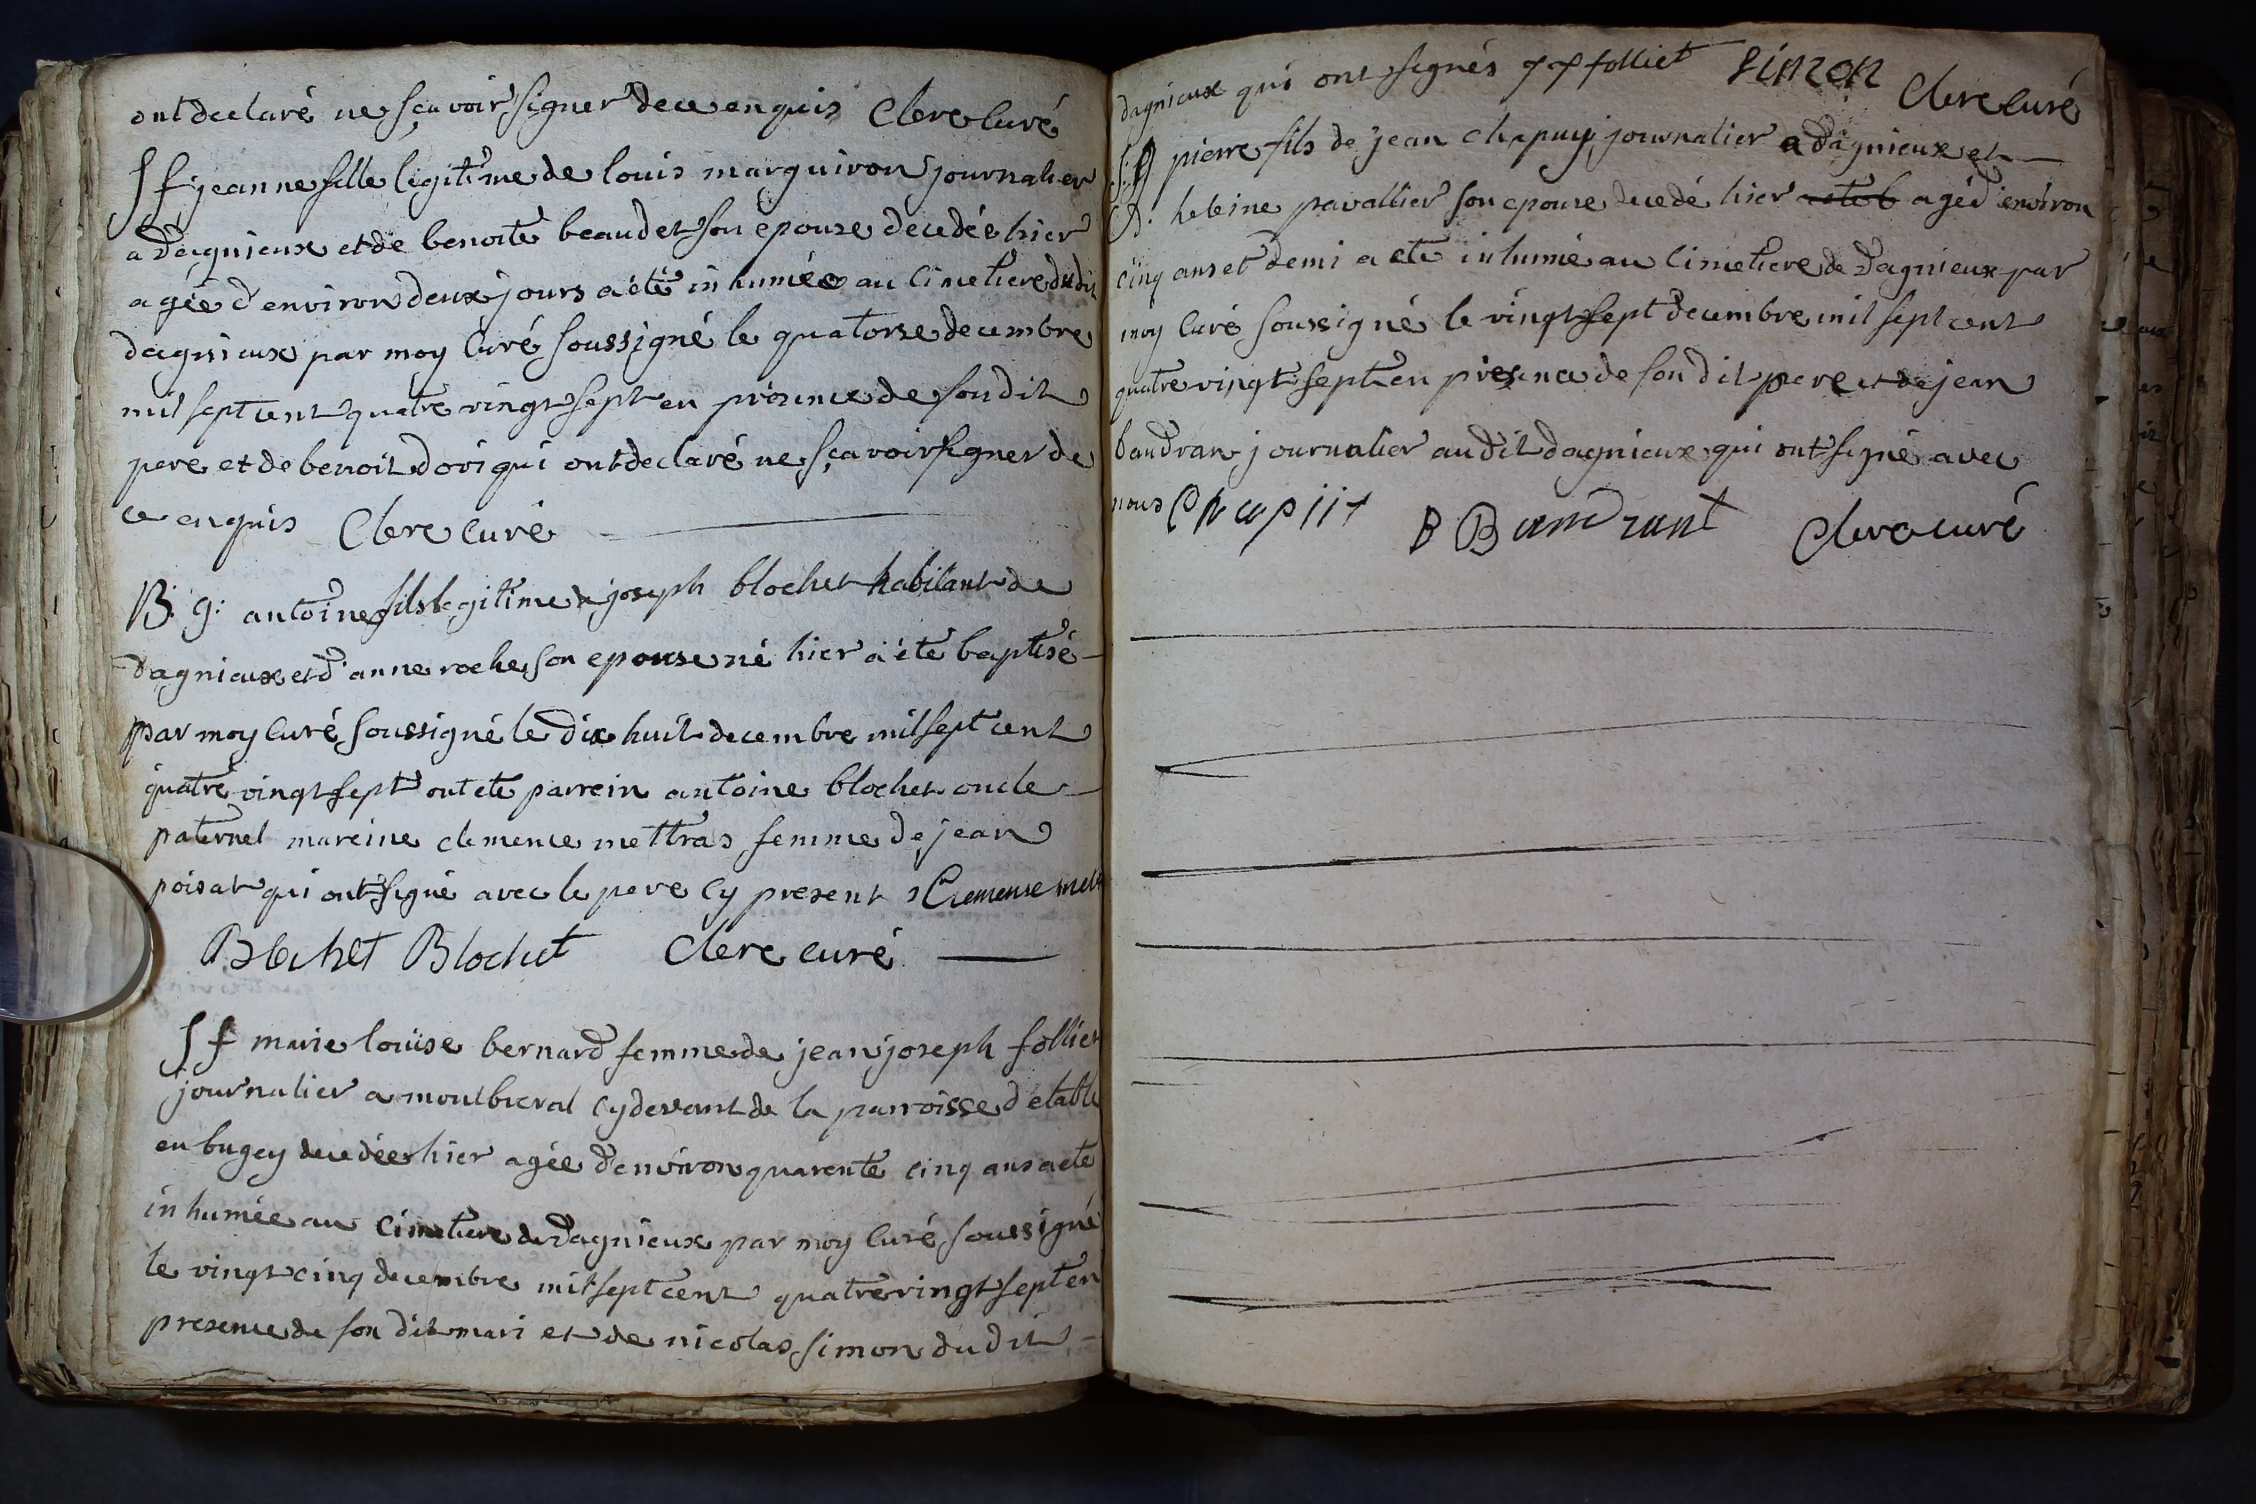 ont declaré ne sçavoir signer de ce enquis Clerc curé
S f jeanne fille legitime de louis marguiron journalier
a dagnieux et de benoite beaudet son epouse decedée hier
agée d'environ deux jours a été inhumée au cimetiere dudit
dagnieux par moy curé soussigné le quatorse decembre
mil sept cent quatre vingt sept en présence de son dit
pere et de benoit dori qui ont declaré ne sçavoir signer de
ce enquis Clerc curé
B. g: antoine fils legitime de joseph blochet habitant de
dagnieux et d'anne roche son epouse né hier a été baptisé
par moy curé soussigné le dix huit decembre mil sept cent
quatre vingt sept ont ete parrein antoine blochet oncle
paternel mareine clemence mettras femme de jean
poisat qui ont signé avec le pere cy present Clemense met
Blochet Blochet Clerc curé
S f marie louise bernard femme de jean joseph folliet
journalier a montbreval cy devant de la parroisse d'etable
en bugey decedée hier agée d'environ quarente cinq ans a ete
inhumée au cimetiere de dagnieux par moy curé soussigné
le vingt cinq decembre mil sept cent quatre vingt sept en
presence de son dit mari et de nicolas simon du dit
dagnieux qui ont signés j j folliet Simon Clerc curé
S. g pierre fils de jean chapuy journalier a dagnieux et
d. heleine pavallier son epouse decedé hier agé d'environ
cinq ans et demi a ete inhumé au cimetiere de dagnieux par
moy curé soussigné le vingt sept decembre mil sept cent
quatre vingt sept en présence de son dit pere et de jean
baudran journalier au dit dagnieux qui ont signé avec
nous B Baudrant Clerc curé